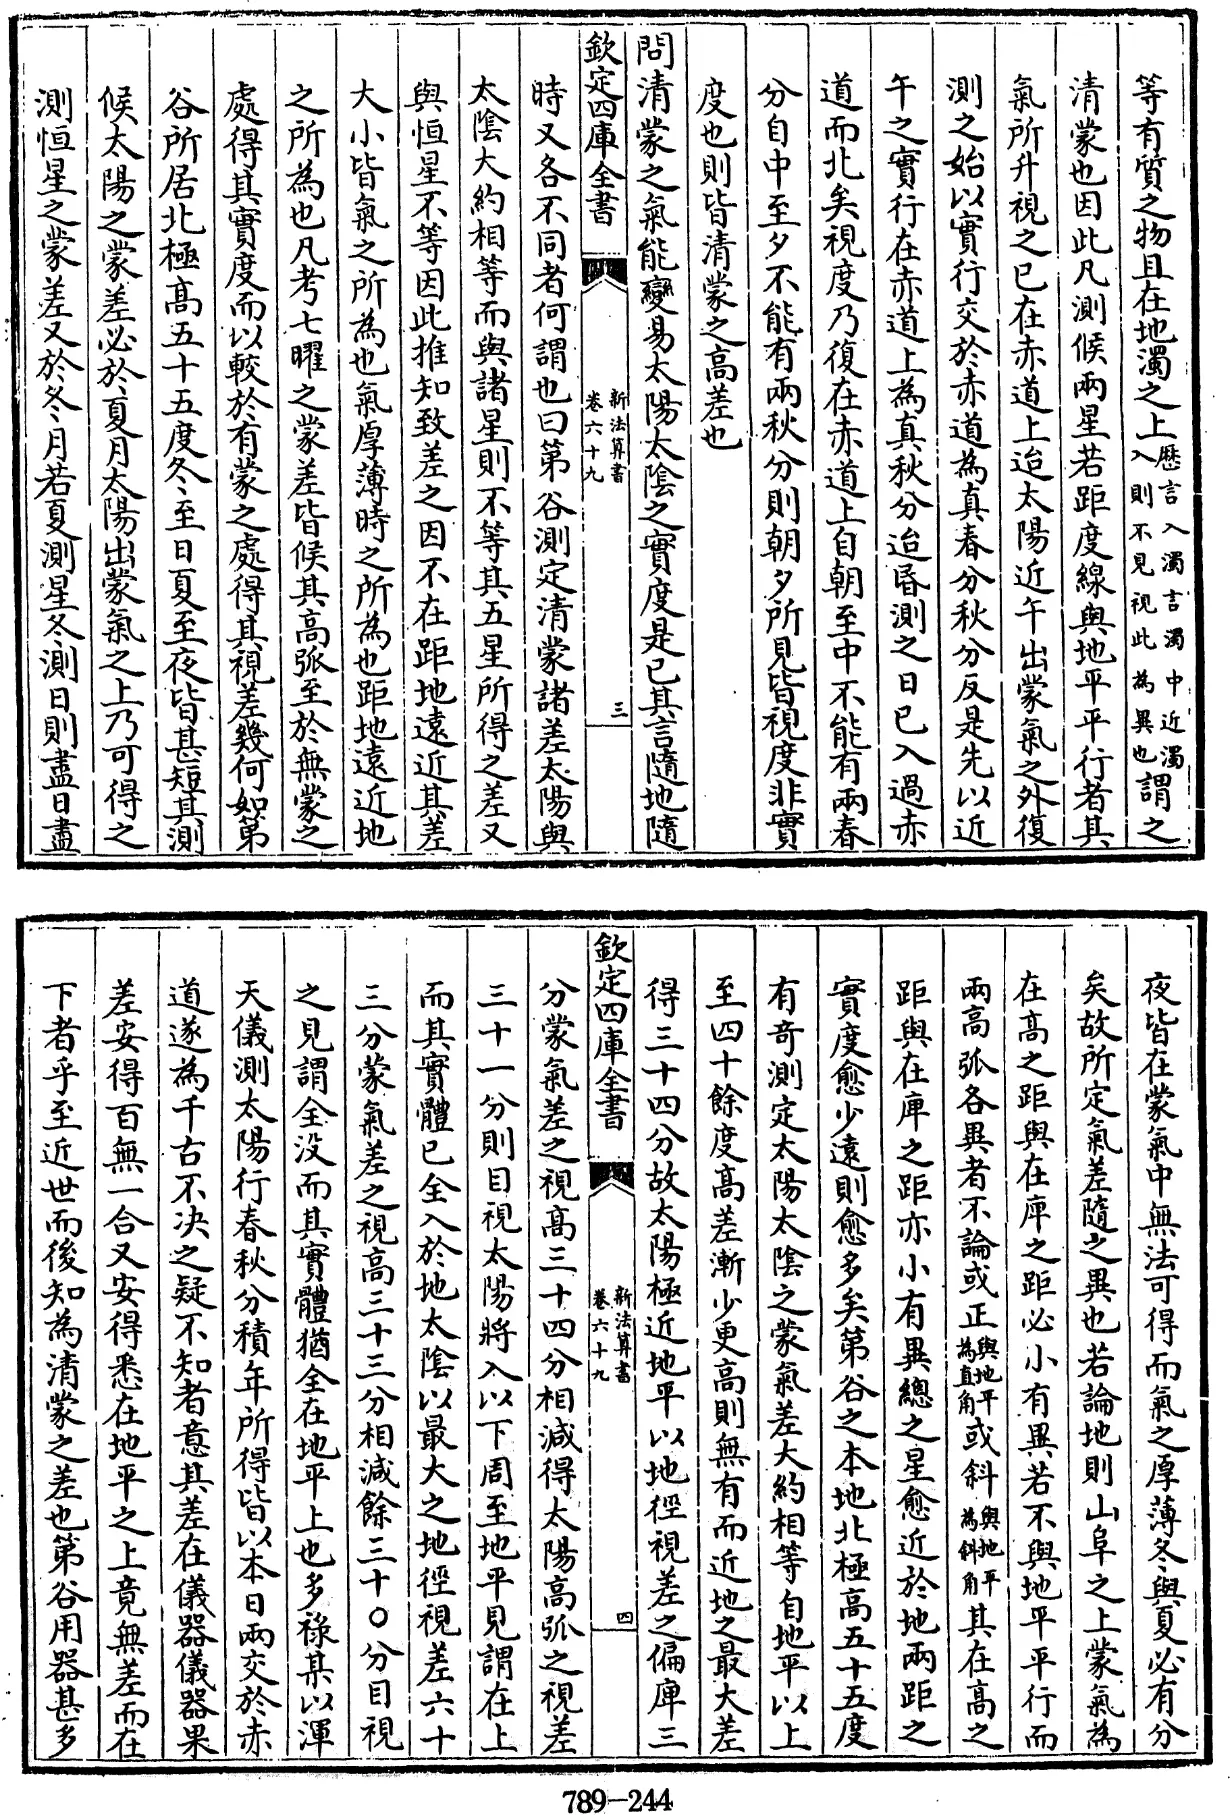 等有質之物且在地濁之上歴言入濁言濁中近濁入則不見視此為異也謂之
清蒙也因此凡測候兩星若距度線與地平平行者其
氣所升視之已在赤道上迨太陽近午出蒙氣之外復
測之始以實行交於赤道為真春分秋分反是先以近
午之實行在赤道上為真秋分迨昏測之日已入過赤
道而北矣視度乃復在赤道上自朝至中不能有兩春
分自中至夕不能有兩秋分則朝夕所見皆視度非實
度也則皆清蒙之高差也
問清蒙之氣能變易太陽太陰之實度是已其言隨地隨
欽定四庫全書
新法算書
卷六十九
三
時又各不同者何謂也曰第谷測定清蒙諸差太陽與
太陰大約相等而與諸星則不等其五星所得之差又
與恒星不等因此推知致差之因不在距地遠近其差
大小皆氣之所為也氣厚薄時之所為也距地遠近地
之所為也凡考七曜之蒙差皆候其高弧至於無蒙之
處得其實度而以較於有蒙之處得其視差幾何如第
谷所居北極高五十五度冬至日夏至夜皆甚短其測
候太陽之蒙差必於夏月太陽出蒙氣之上乃可得之
測恒星之蒙差又於冬月若夏測星冬測日則盡日盡
夜皆在蒙氣中無法可得而氣之厚薄冬與夏必有分
矣故所定氣差隨之異也若論地則山阜之上蒙氣為
在高之距與在庳之距必小有異若不與地平平行而
兩高弧各異者不論或正與地平為直角或斜與地平為斜角其在高之
距與在庳之距亦小有異總之星愈近於地兩距之
實度愈少遠則愈多矣第谷之本地北極高五十五度
有奇測定太陽太陰之蒙氣差大約相等自地平以上
至四十餘度高差漸少更高則無有而近地之最大差
得三十四分故太陽極近地平以地徑視差之偏庳三
欽定四庫全書
新法算書
卷六十九
四
分蒙氣差之視高三十四分相減得太陽高弧之視差
三十一分則目視太陽將入以下周至地平見謂在上
而其實體已全入於地太陰以最大之地徑視差六十
三分蒙氣差之視高三十三分相減餘三十〇分目視
之見謂全没而其實體猶全在地平上也多祿某以渾
天儀測太陽行春秋分積年所得皆以本日兩交於赤
道遂為千古不決之疑不知者意其差在儀器儀器果
差安得百無一合又安得悉在地平之上竟無差而在
下者乎至近世而後知為清蒙之差也第谷用器甚多
789-244